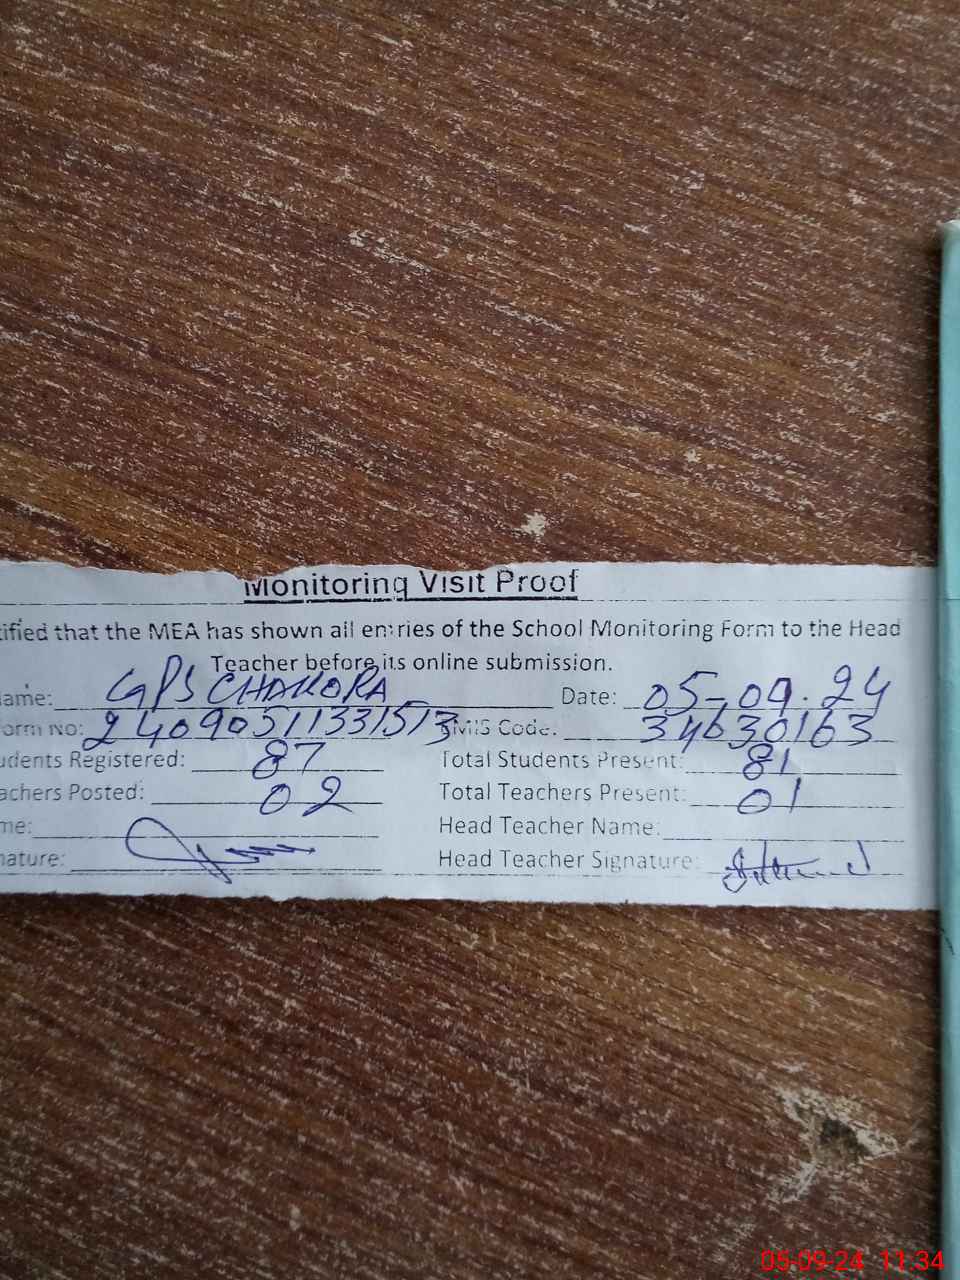 Monitoring Visit Proof
tified that the MEA has shown all entries of the School Monitoring Form to the Head
Teacher before its online submission.
ame: GPS CHAKORA Date: 05-09.24
orm No: 24090511331513 EMIS Code. 34630163
udents Registered: 87 Total Students Present: 81
achers Posted: 02 Total Teachers Present: 01
me: Head Teacher Name:
nature: Head Teacher Signature:
05-09-24 11:34